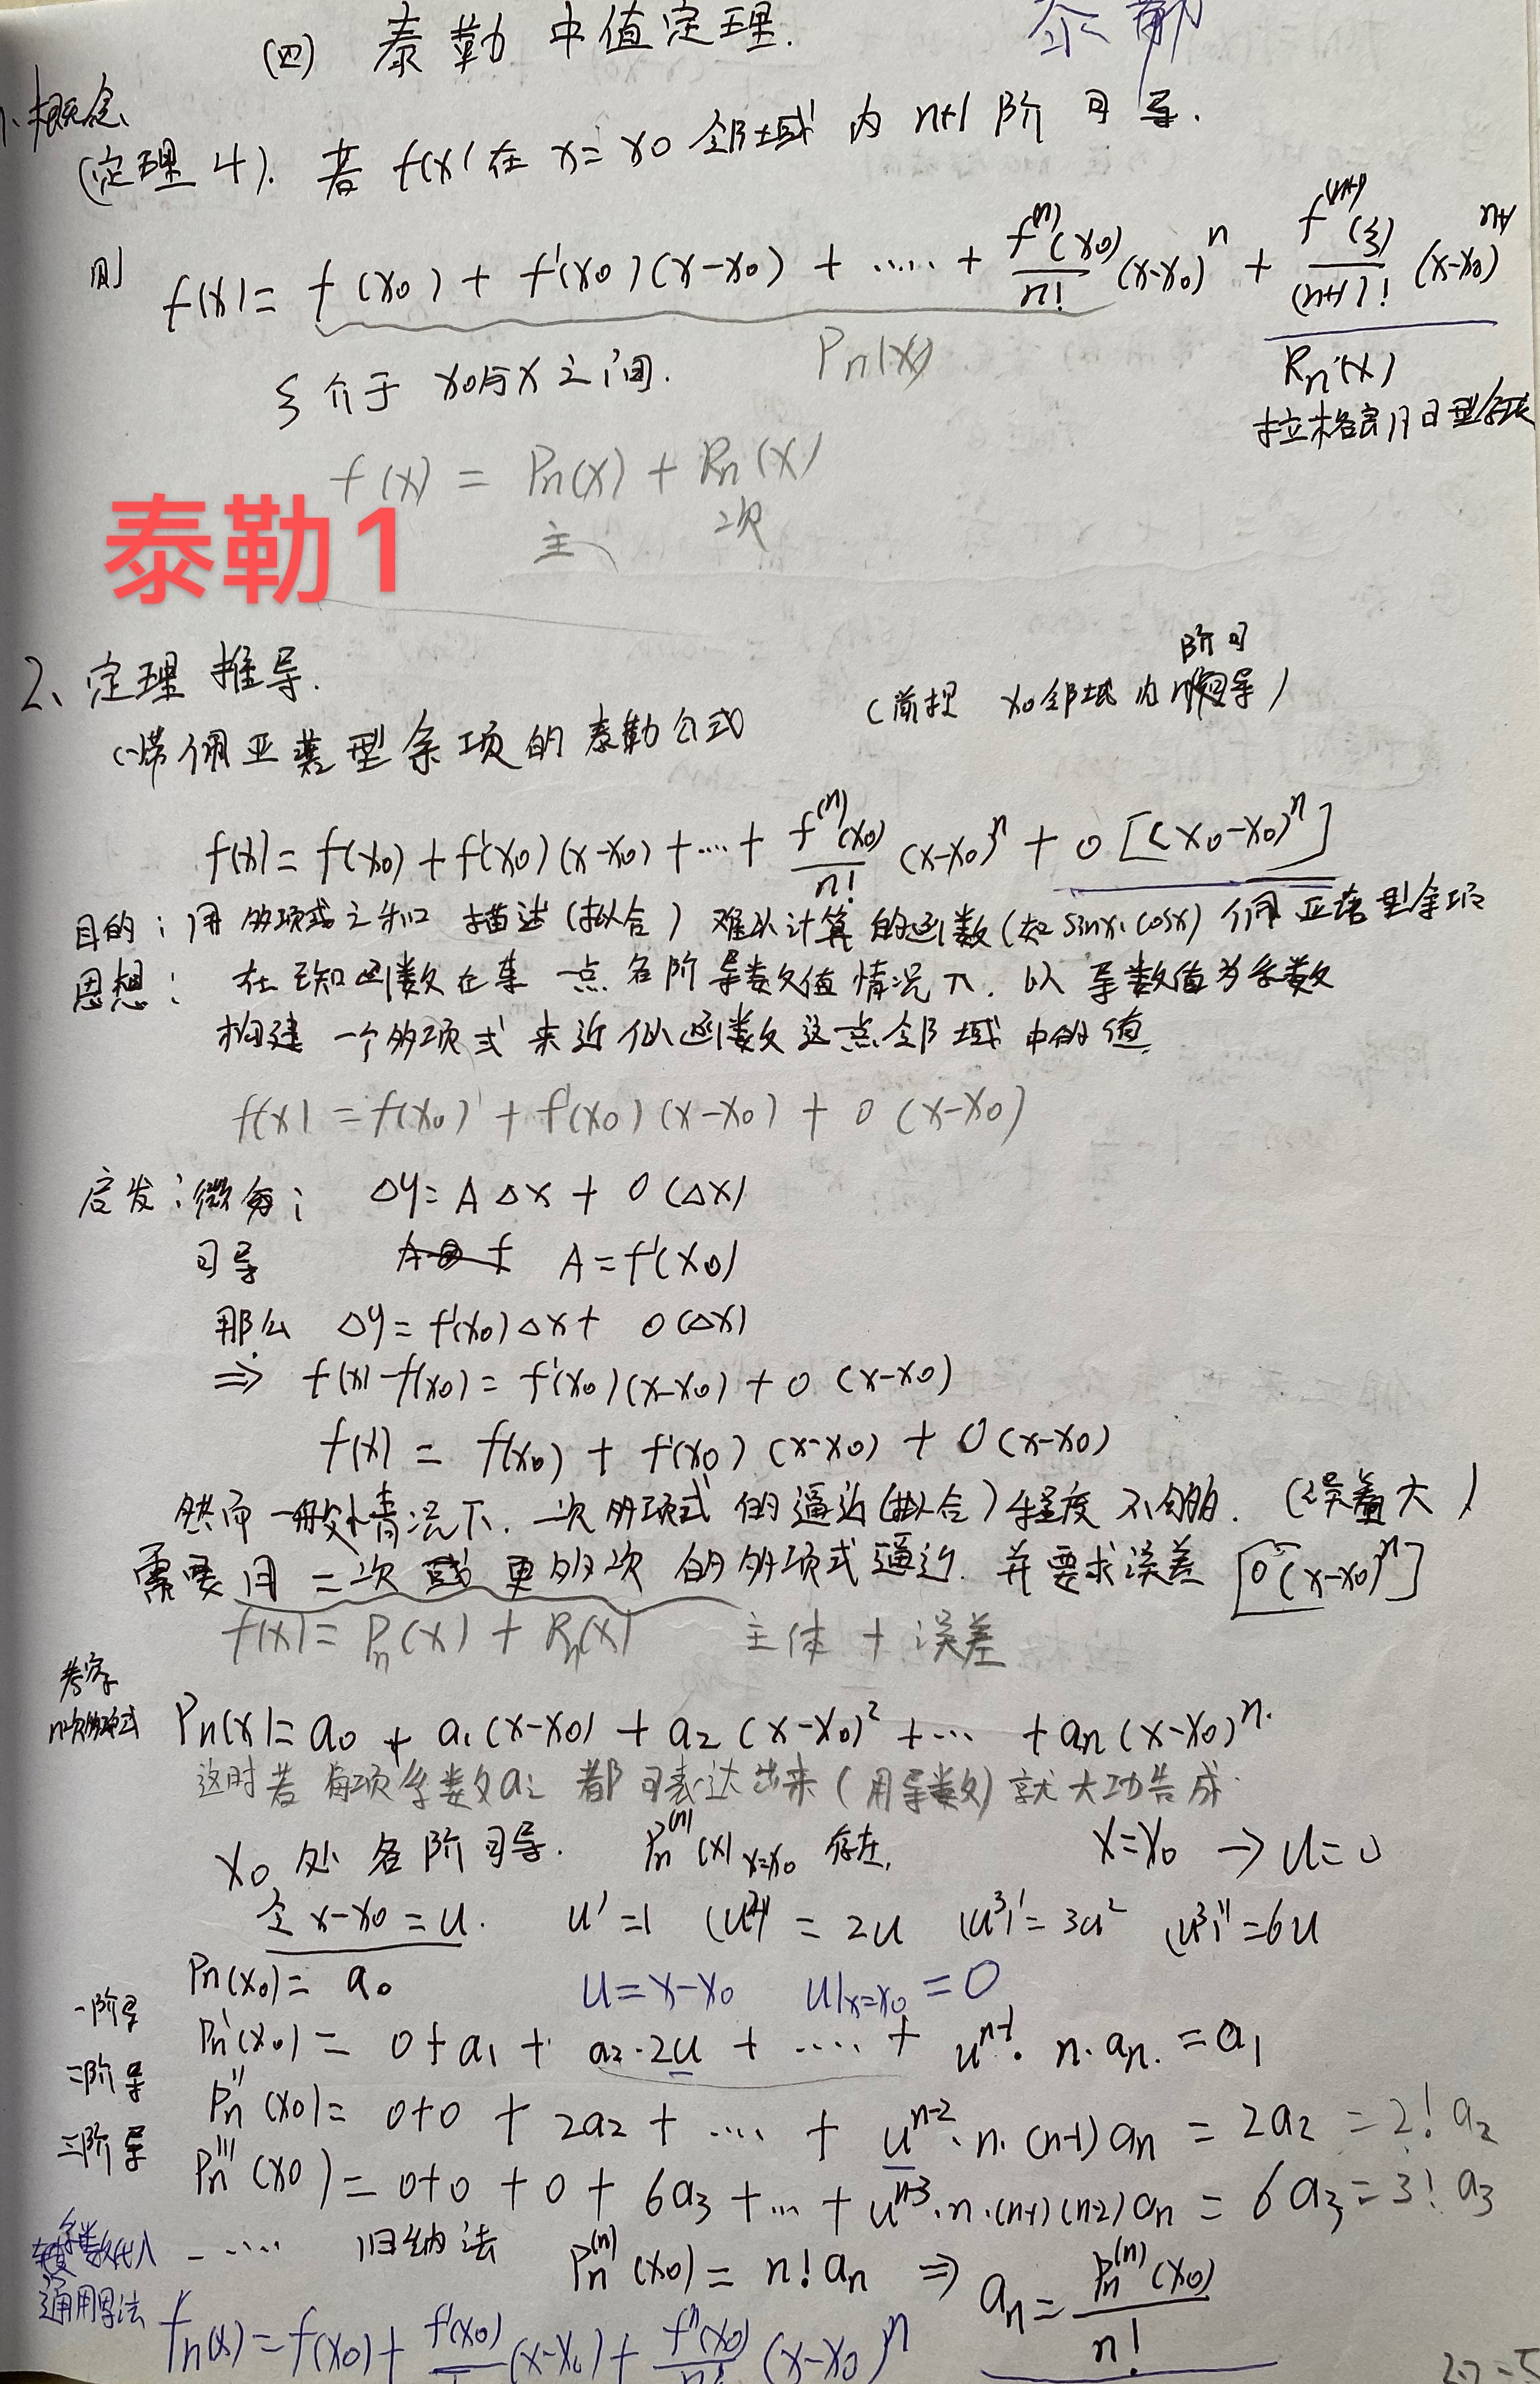 (四) 泰勒中值定理.
泰勒
1、概念
(定理4). 若 f(x) 在 x=x0 邻域内 n+1 阶可导.
则 f(x)= f(x0) + f'(x0)(x-x0) + ····· + f⁽ⁿ⁾(x0)/n! (x-x0)ⁿ + f⁽ⁿ⁺¹⁾(ξ)/(n+1)! (x-x0)ⁿ⁺¹
Pn(x)
Rn(x)
ξ介于 x0与x 之间.
拉格朗日型余项
f(x) = Pn(x) + Rn(x)
主 次
泰勒1
2、定理推导.
(带佩亚诺型余项的泰勒公式 (前提 x0邻域内n阶可导)
f(x)= f(x0) + f'(x0)(x-x0) +····+ f⁽ⁿ⁾(x0)/n! (x-x0)ⁿ + o[(x0-x0)ⁿ]
佩亚诺型余项
目的: 用多项式之和 描述(拟合) 难以计算的函数(如 sinx, cosx)
思想: 在已知函数在某一点各阶导数值情况下, 以导数值为系数
构建一个多项式来近似函数这点邻域中的值
f(x) = f(x0) + f'(x0)(x-x0) + o(x-x0)
启发: 微分: Δy= AΔx + o(Δx)
可导 A=f'(x0)
那么 Δy= f'(x0)Δx + o(Δx)
⇒ f(x)-f(x0)= f'(x0)(x-x0) + o(x-x0)
f(x) = f(x0) + f'(x0)(x-x0) + o(x-x0)
然而一般情况下, 一次多项式的逼近(拟合)程度不够. (误差大)
需要用二次或更多次的多项式逼近. 并要求误差 [o(x-x0)ⁿ]
f(x)= Pn(x) + Rn(x) 主体 + 误差
考察
n次多项式 Pn(x)= a0 + a1(x-x0) + a2(x-x0)² +··· + an(x-x0)ⁿ.
这时若每项系数ai 都可表达出来(用导数)就大功告成.
x0 处各阶可导. Pn⁽ⁿ⁾(x)|x=x0 存在, x=x0 → u=0
令 x-x0=u. u'=1 (u²)' = 2u (u³)'=3u² (u³)''=6u
Pn(x0)= a0 u=x-x0 u|x=x0 =0
一阶导 Pn'(x0)= 0+a1 + a2·2u + ····· + uⁿ⁻¹· n·an. =a1
二阶导 Pn''(x0)= 0+0 + 2a2 + ···· + uⁿ⁻²·n·(n-1)an = 2a2 =2! a2
三阶导 Pn'''(x0)= 0+0+0+ 6a3 +··· + uⁿ⁻³·n·(n-1)(n-2)an = 6a3=3! a3
····· 归纳法 Pn⁽ⁿ⁾(x0)= n! an ⇒ an= Pn⁽ⁿ⁾(x0)/n!
系数代入
fn(x)=f(x0)+ f'(x0)/1 (x-x0)+ fⁿ(x0)/n! (x-x0)ⁿ